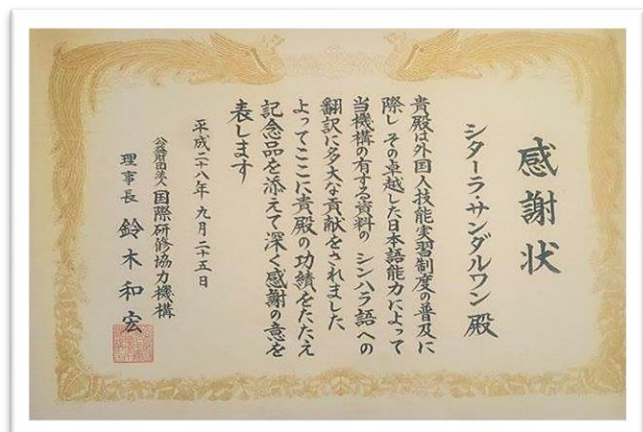 感謝状
シターラ・サンダルワン 殿
貴殿は外国人技能実習制度の普及に
際し その卓越した日本語能力によって
当機構の有する資料の シンハラ語への
翻訳に多大な貢献をされました
よってここに貴殿の功績をたたえ
記念品を添えて深く感謝の意を
表します
平成二十八年 九月二十五日
公益財団法人 国際研修協力機構
理事長 鈴木和宏